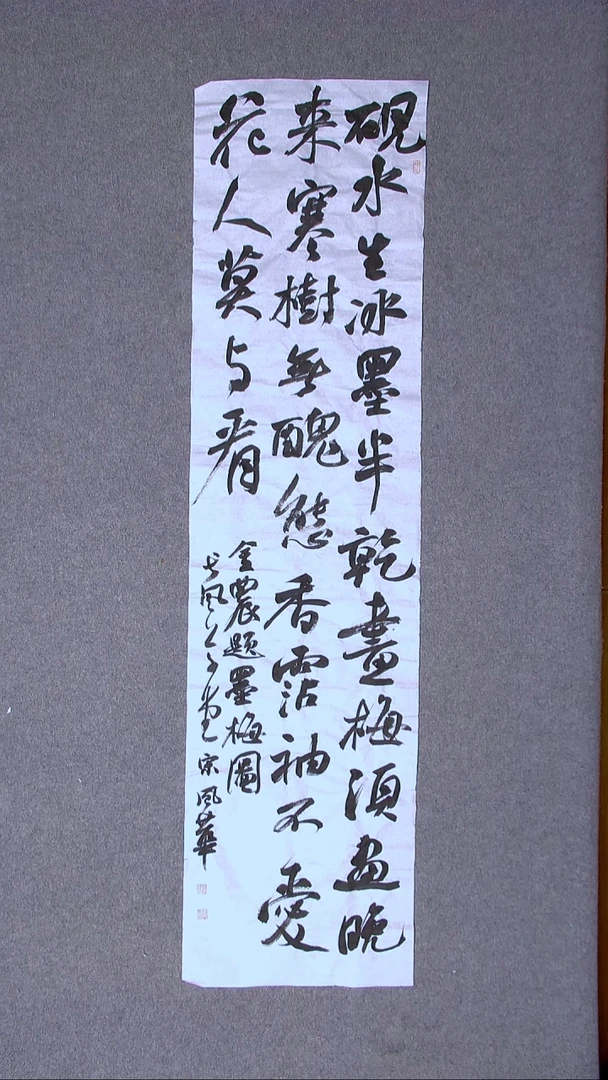 硯水生冰墨半乾畫梅須畫晚
来寒樹無醜態香霑袖不愛
花人莫与看
金農題墨梅圖
宗風華